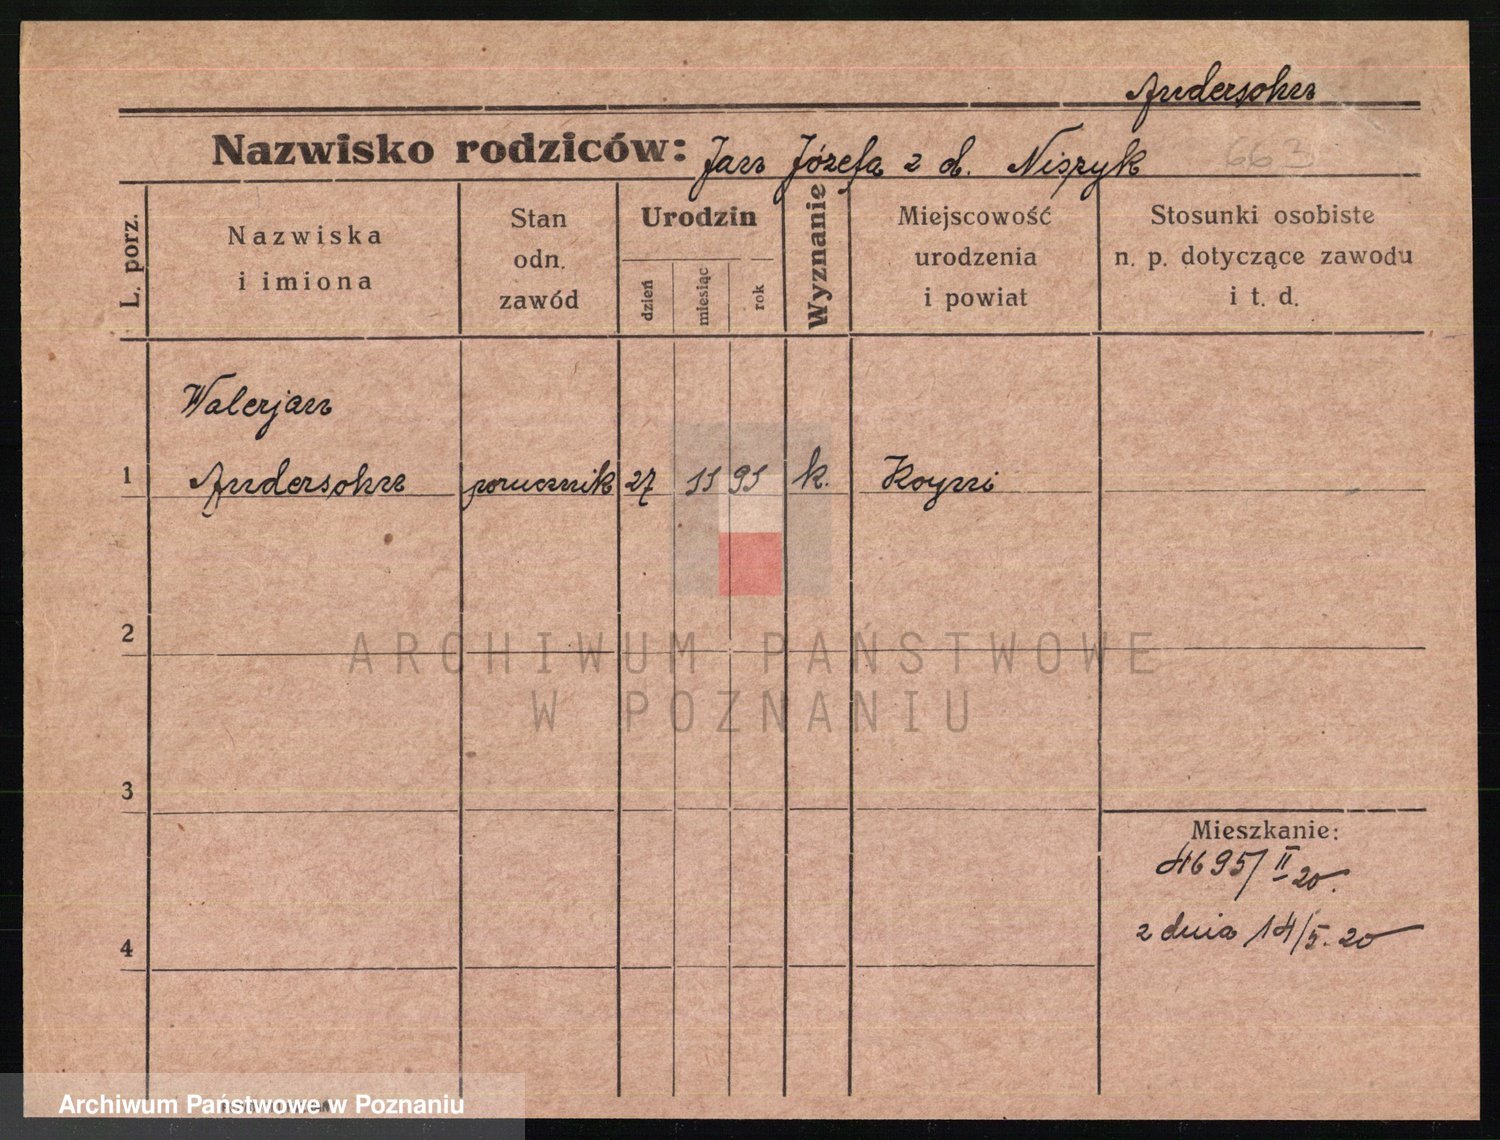 Andersohn
Nazwisko rodziców: Jan Józefa z d. Niszyk 663
L. porz.
Nazwiska
i imiona
Stan
odn.
zawód
Urodzin
dzień
miesiąc
rok
Wyznanie
Miejscowość
urodzenia
i powiat
Stosunki osobiste
n. p. dotyczące zawodu
i t. d.
Walerjan
1 Andersohn porucznik 27 11 91 k.
2
ARCHIWUM PAŃSTWOWE
W POZNANIU
3
Mieszkanie:
4695/II 20.
z dnia 14/5. 20
4
Archiwum Państwowe w Poznaniu